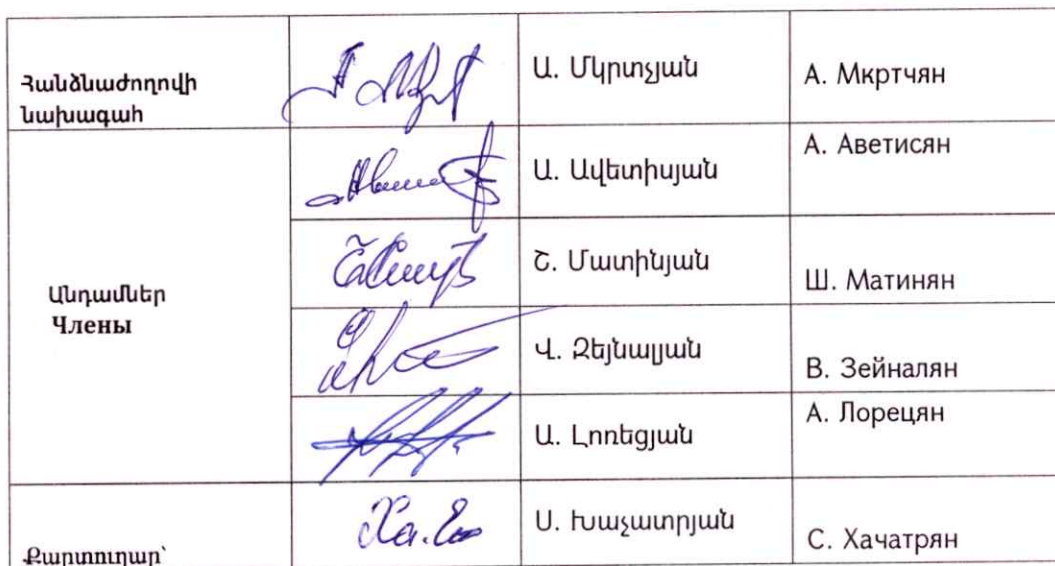 Հանձնաժողովի
նախագահ
Ա. Մկրտչյան
А. Мкртчян
Անդամներ
Члены
Ա. Ավետիսյան
А. Аветисян
Շ. Մատինյան
Ш. Матинян
Վ. Զեյնալյան
В. Зейналян
Ա. Լոռեցյան
А. Лорецян
Քարտուղար՝
Ս. Խաչատրյան
С. Хачатрян